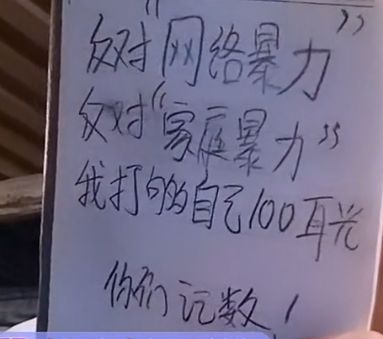 反对“网络暴力”
反对“家庭暴力”
我打的自己100耳光
你们记数！